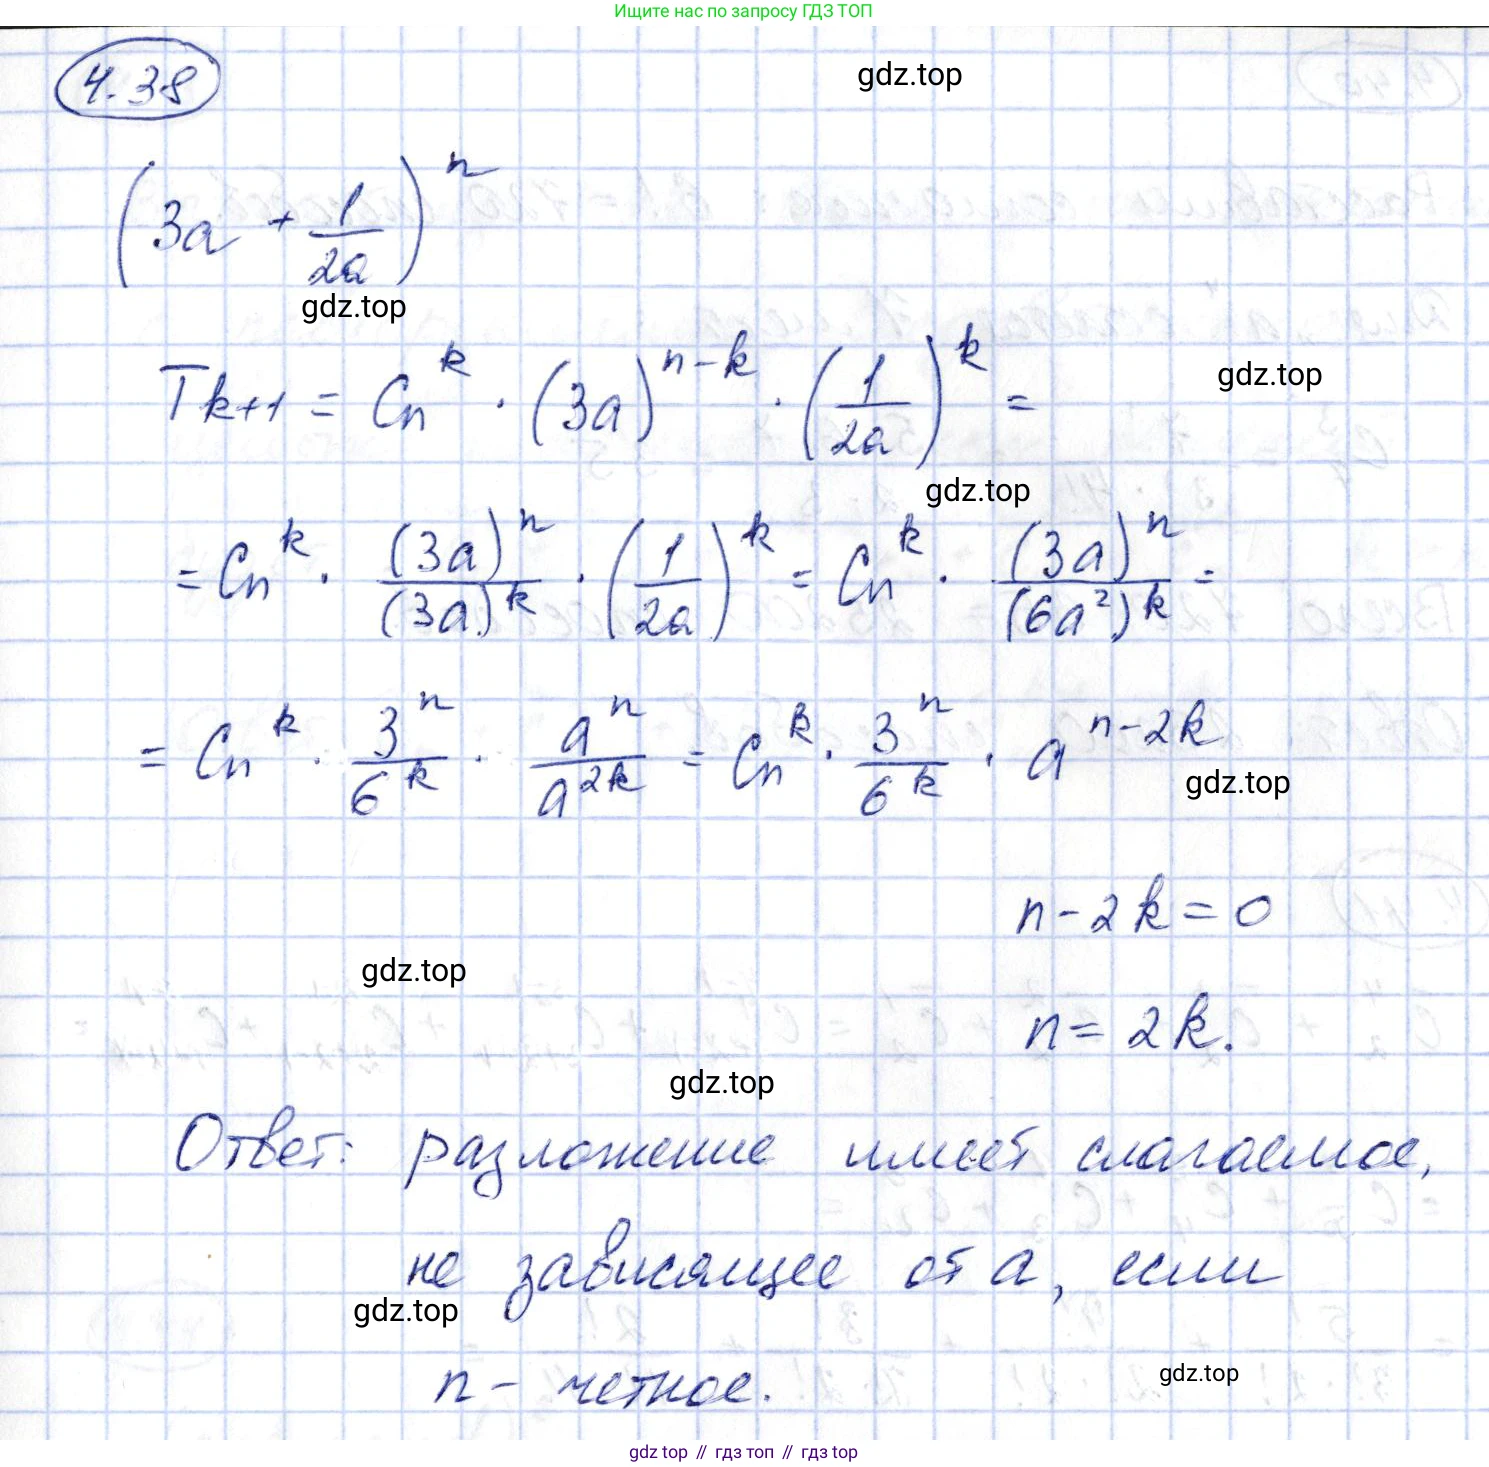 Ищите нас по запросу ГДЗ ТОП
4.38
gdz.top
(3a + 1/(2a))^n
gdz.top
T_{k+1} = C_n^k · (3a)^{n-k} · (1/(2a))^k =
gdz.top
gdz.top
= C_n^k · (3a)^n/(3a)^k · (1/(2a))^k = C_n^k · (3a)^n/(6a^2)^k =
= C_n^k · 3^n/6^k · a^n/a^{2k} = C_n^k · 3^n/6^k · a^{n-2k}
gdz.top
n - 2k = 0
gdz.top
n = 2k.
gdz.top
Ответ: разложение имеет слагаемое,
не зависящее от a, если
gdz.top
n - четное.
gdz.top
gdz top // гдз топ // гдз top